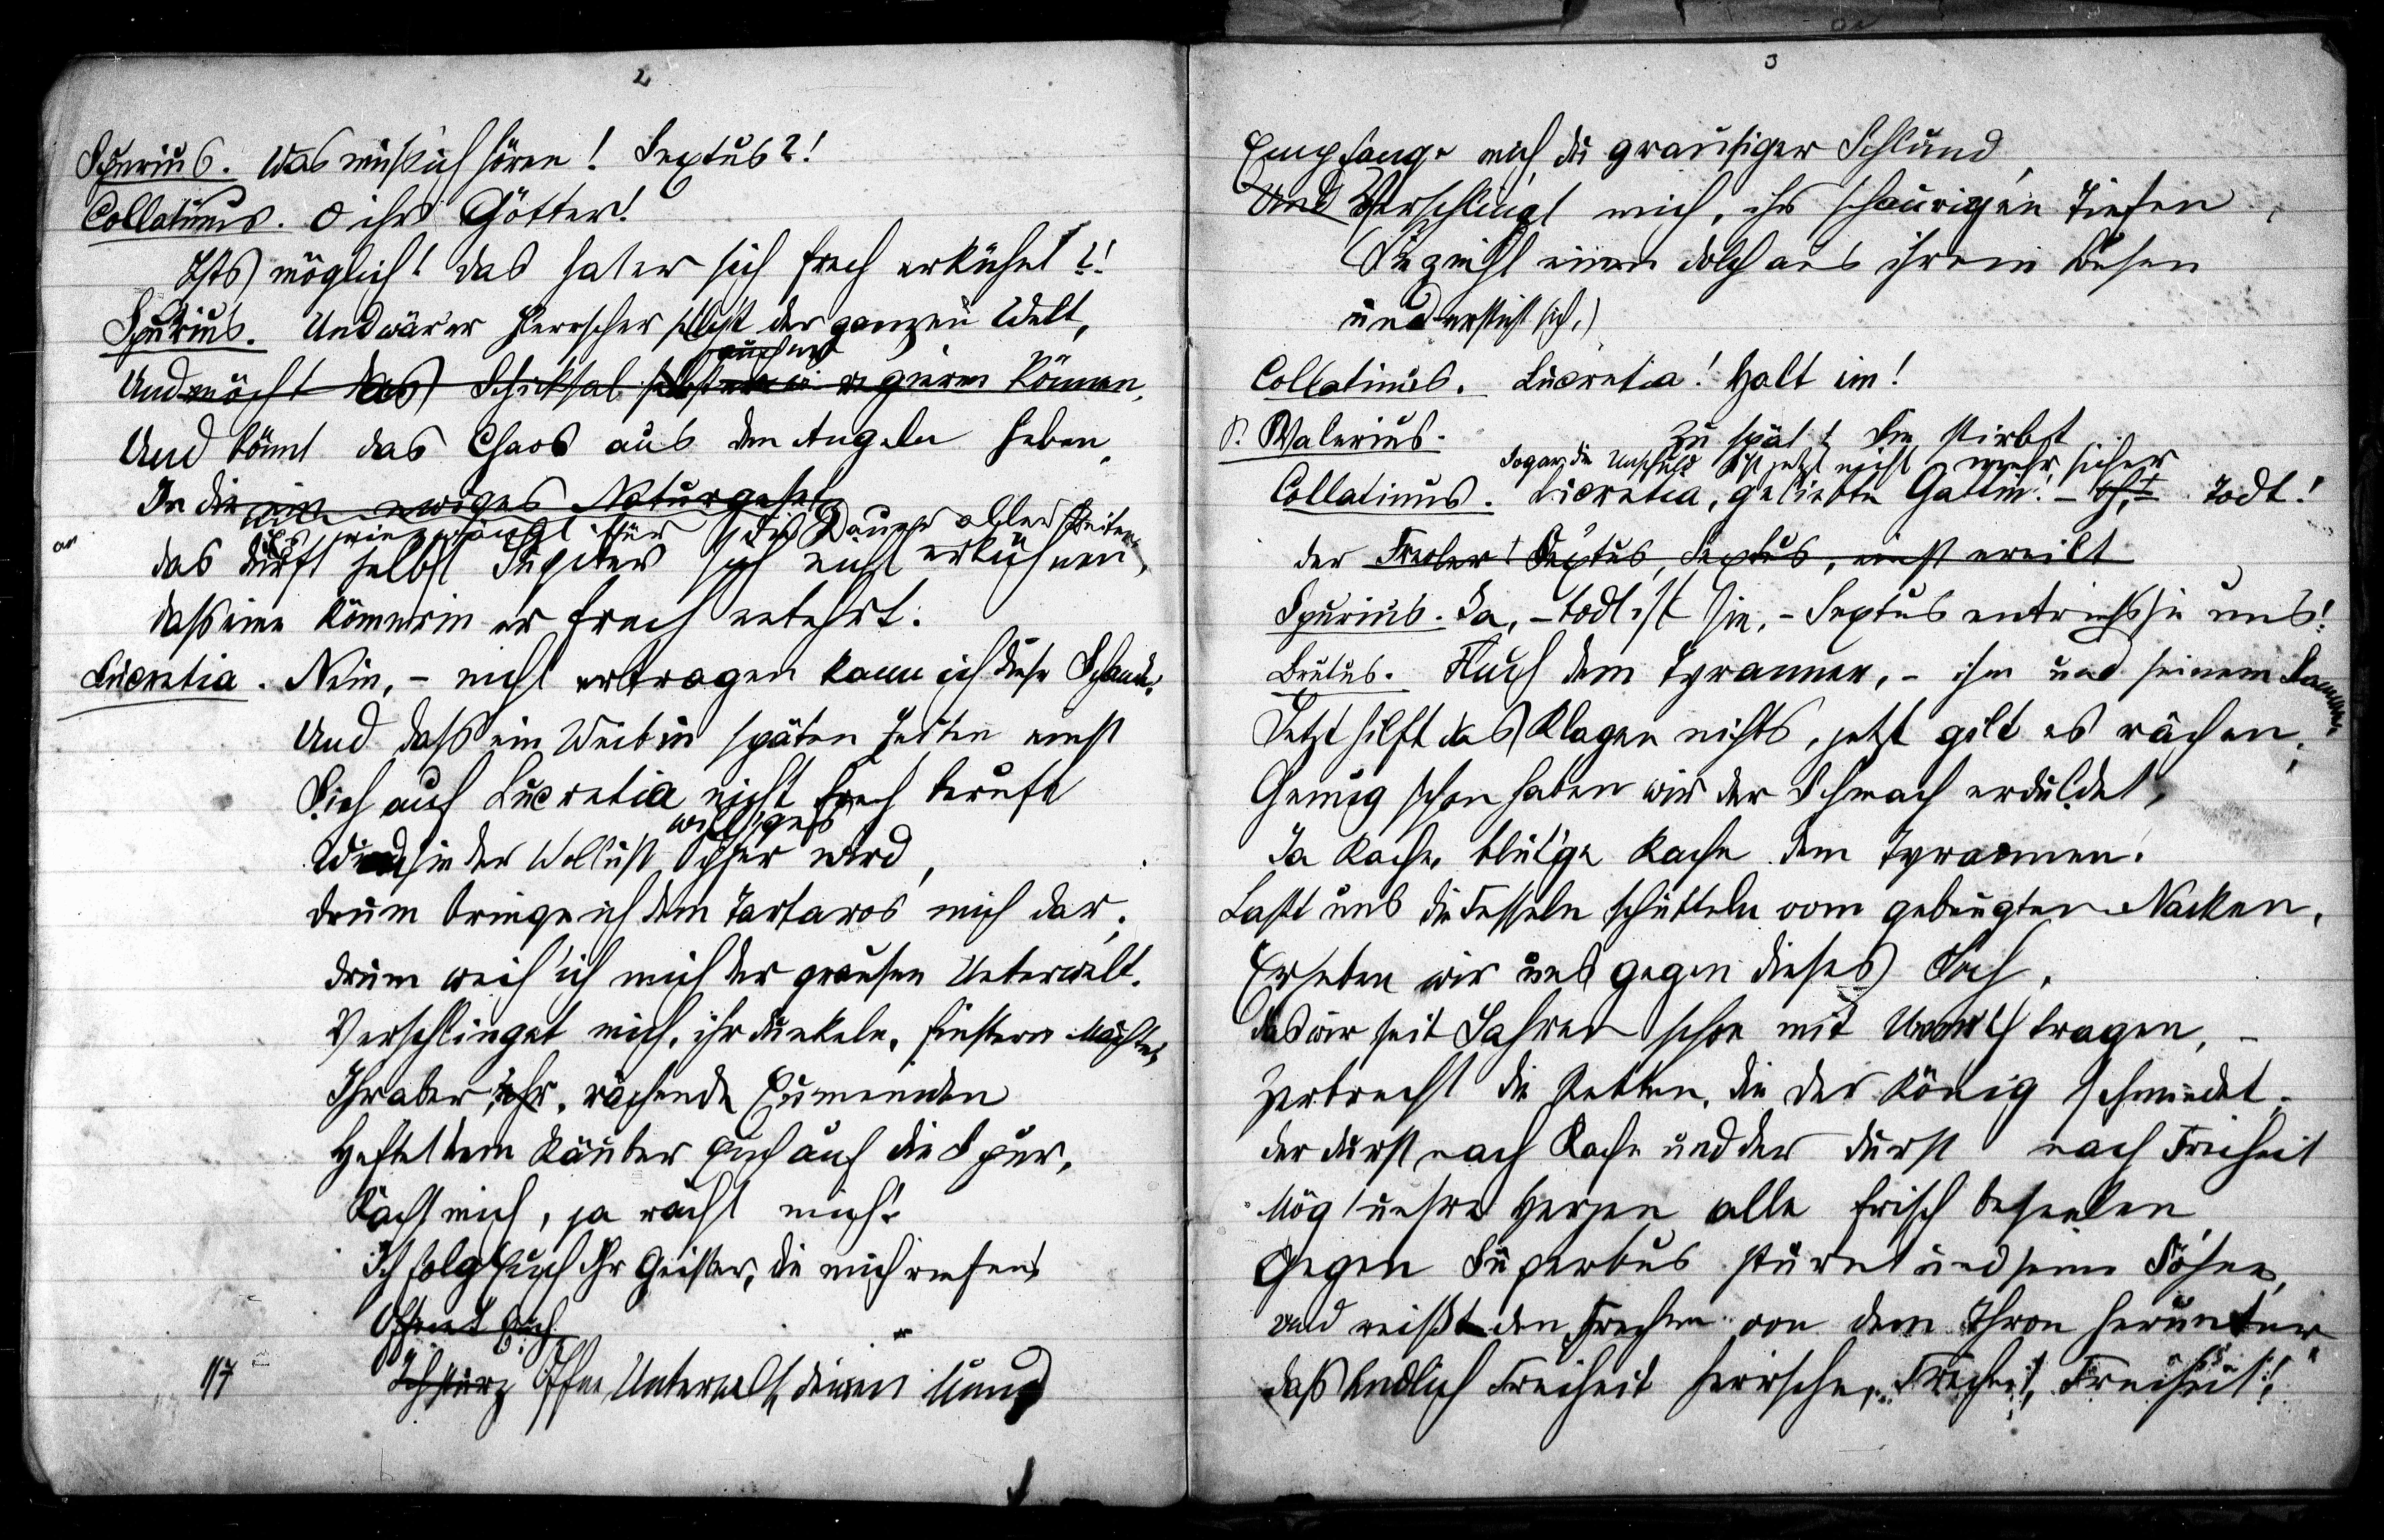 2
Spurius. Was muß ich hören! Sextus?!
Collatinus. O ihr Götter!
Ists möglich! das hat er sich frech erkühnt?!
Spurius. Und wär er Herrscher selbst der ganzen Welt,
auch er
Und möcht das Schicksal selbst regieren können,
Und könnt das Chaos aus den Angeln heben,
In die ein ewiges Naturgesetz
es eingezwängt für die Dauer aller Zeiten,
das dürft selbst Jupiter sich nicht erkühnen,
daß eine Römerin er frech entehrt.
Lucretia. Nein, – nicht ertragen kann ich diese Schande,
Und daß ein Weib in späten Zeiten einst
Sich auf Lucretia nicht frech berufe
williges
Wenn sie der Wollust Opfer wird,
drum bringe ich dem Tartaros mich dar,
drum weih' ich mich der grausen Unterwelt.
Verschlinget mich, ihr dunkeln, finstern Mächte,
Ihr aber, ihr, rächende Eumeniden
Heftet dem Räuber euch auf die Spur,
Rächt mich, ja rächt mich!
Ich folg euch ihr Geister, die mich rufen
Öffnet Euch
117 Ich stürz Öffne Unterwelt, deinen Mund
3
Empfange mich du grausiger Schlund,
Und Verschlingt mich, ihr schaurigen Tiefen,
(Sie zieht einen Dolch aus ihrem Busen
und ersticht sich.)
Collatinus. Lucretia! Halt ein!
P. Valerius. Zu spät! Sie stirbt
Sogar die Unschuld ist jetzt nicht mehr sicher
Collatinus. Lucretia, geliebte Gattin! – Todt!
der Frevler! Sextus, Sextus, einst ereilt
Spurius. Ja, – todt ist sie, – Sextus entriß sie uns!
Brutus. Fluch dem Tyrannen, – ihm und seinem Samen,
Jetzt hilft das Klagen nichts, jetzt gilt es rächen,
Genug schon haben wir der Schmach erduldet,
Ja Rache, blut'ge Rache dem Tyrannen.
Laßt uns die Fesseln schütteln vom gebeugten Nacken,
Erheben wir uns gegen dieses Joch,
das wir seit Jahren schon mit tragen, –
Zerbrecht die Ketten, die der König schmiedet,
der Durst nach Rache und der Durst nach Freiheit
Mög unsre Herzen alle frisch beseelen
Gegen Superbus stürmt und seine Söhne,
und reißt den Frechen von dem Thron herunter
daß endlich Freiheit herrsche, Freiheit, Freiheit!